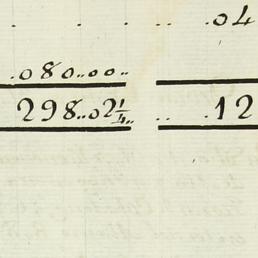 . . .. .04
.080..00..
298..02 1/4.. .. .12